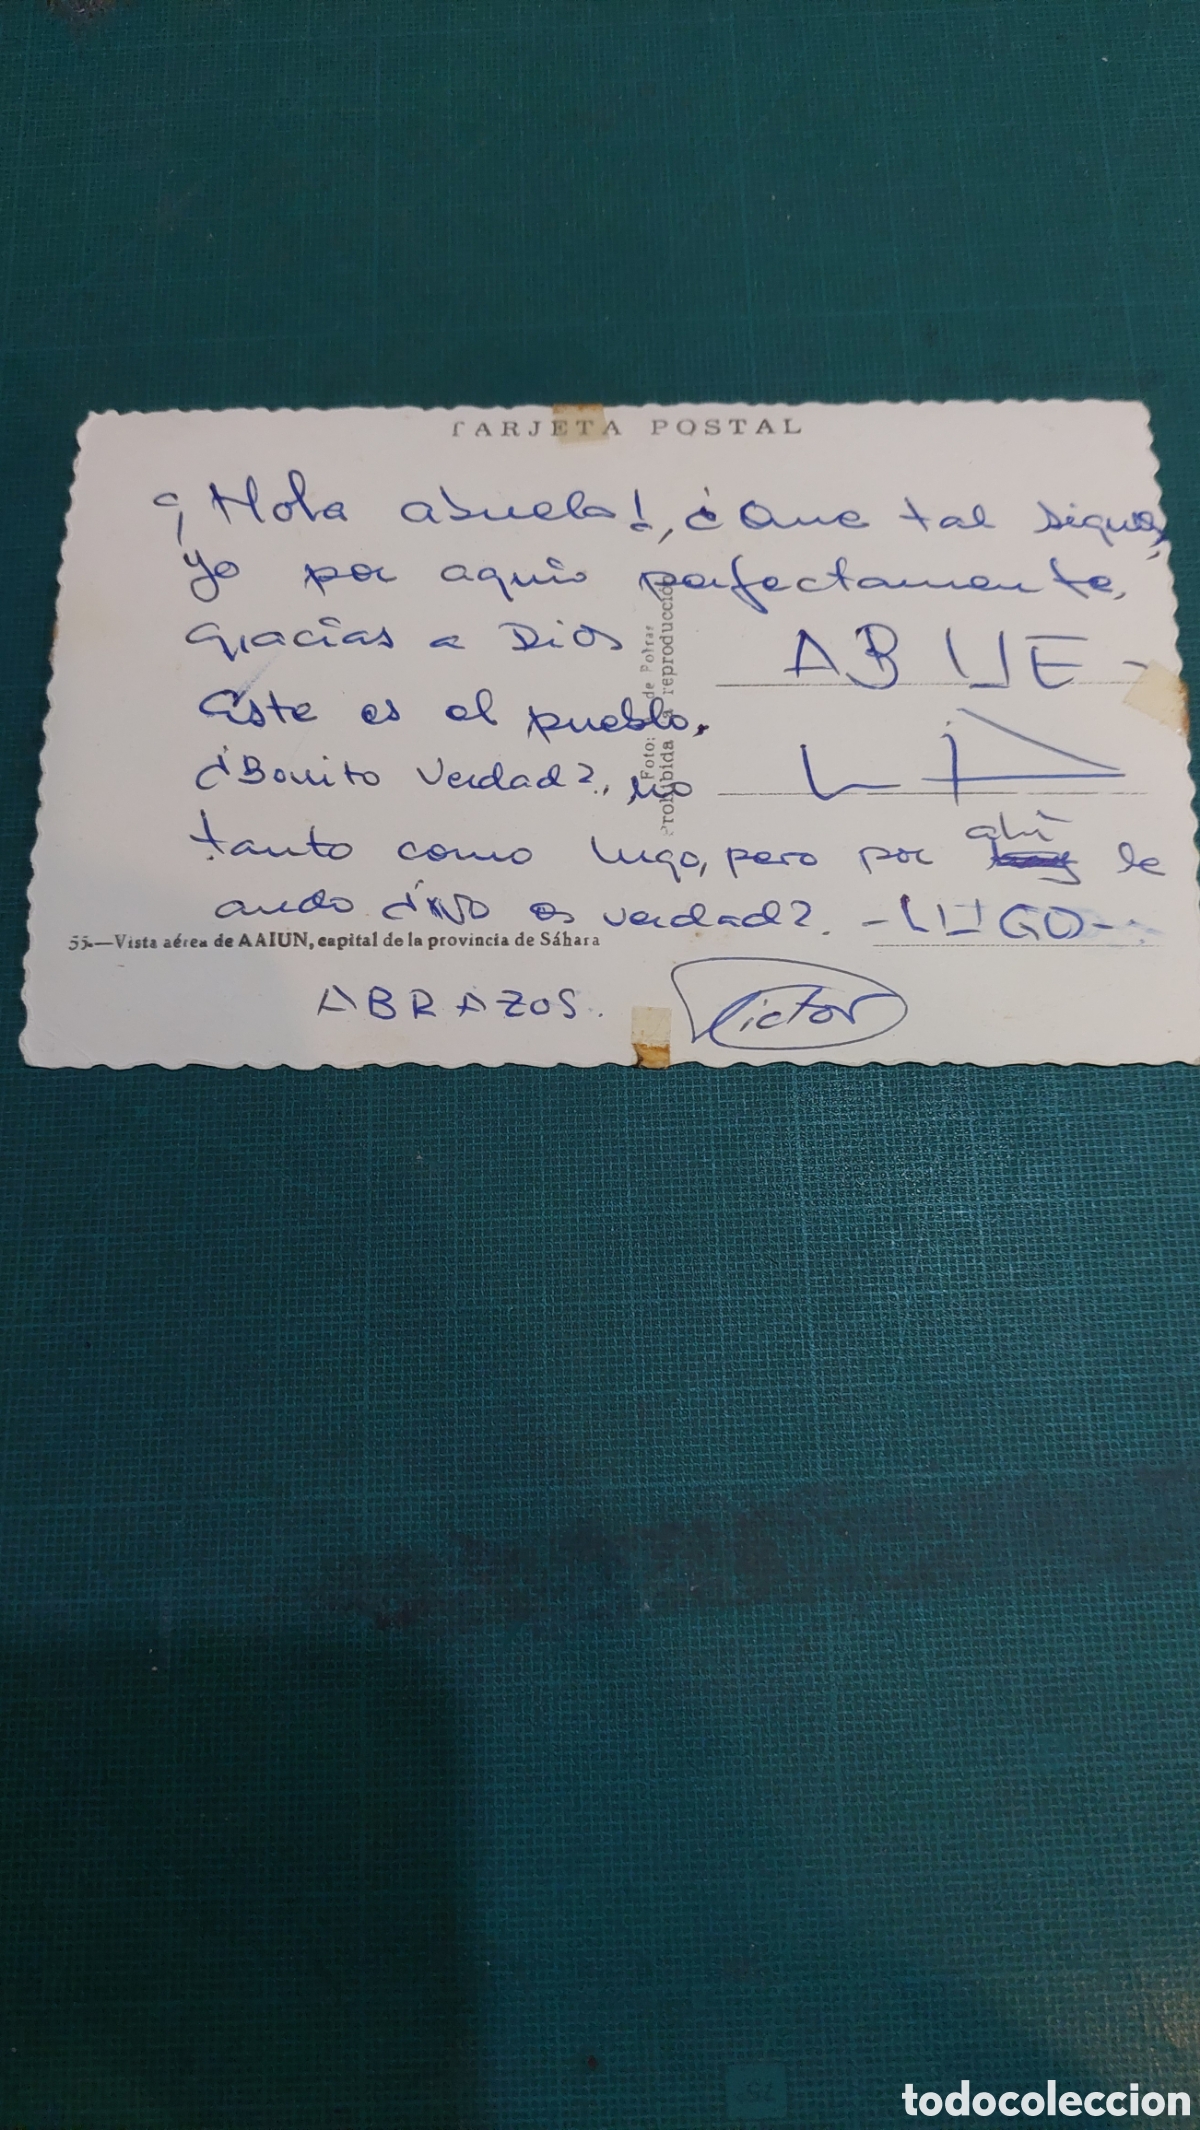 TARJETA POSTAL
¡Hola abuela!, ¿Que tal sigue,
yo por aquio perfectamente,
Gracias a Dios
Este es el pueblo,
¿Bonito verdad?, no
tanto como lugo, pero por ahi le
ando ¿NO es verdad?.
ABUE-
LA
-LUGO-
Foto: de
Prohibida la reproducción
55.—Vista aérea de AAIUN, capital de la provincia de Sáhara
ABRAZOS.
Victor
todocoleccion